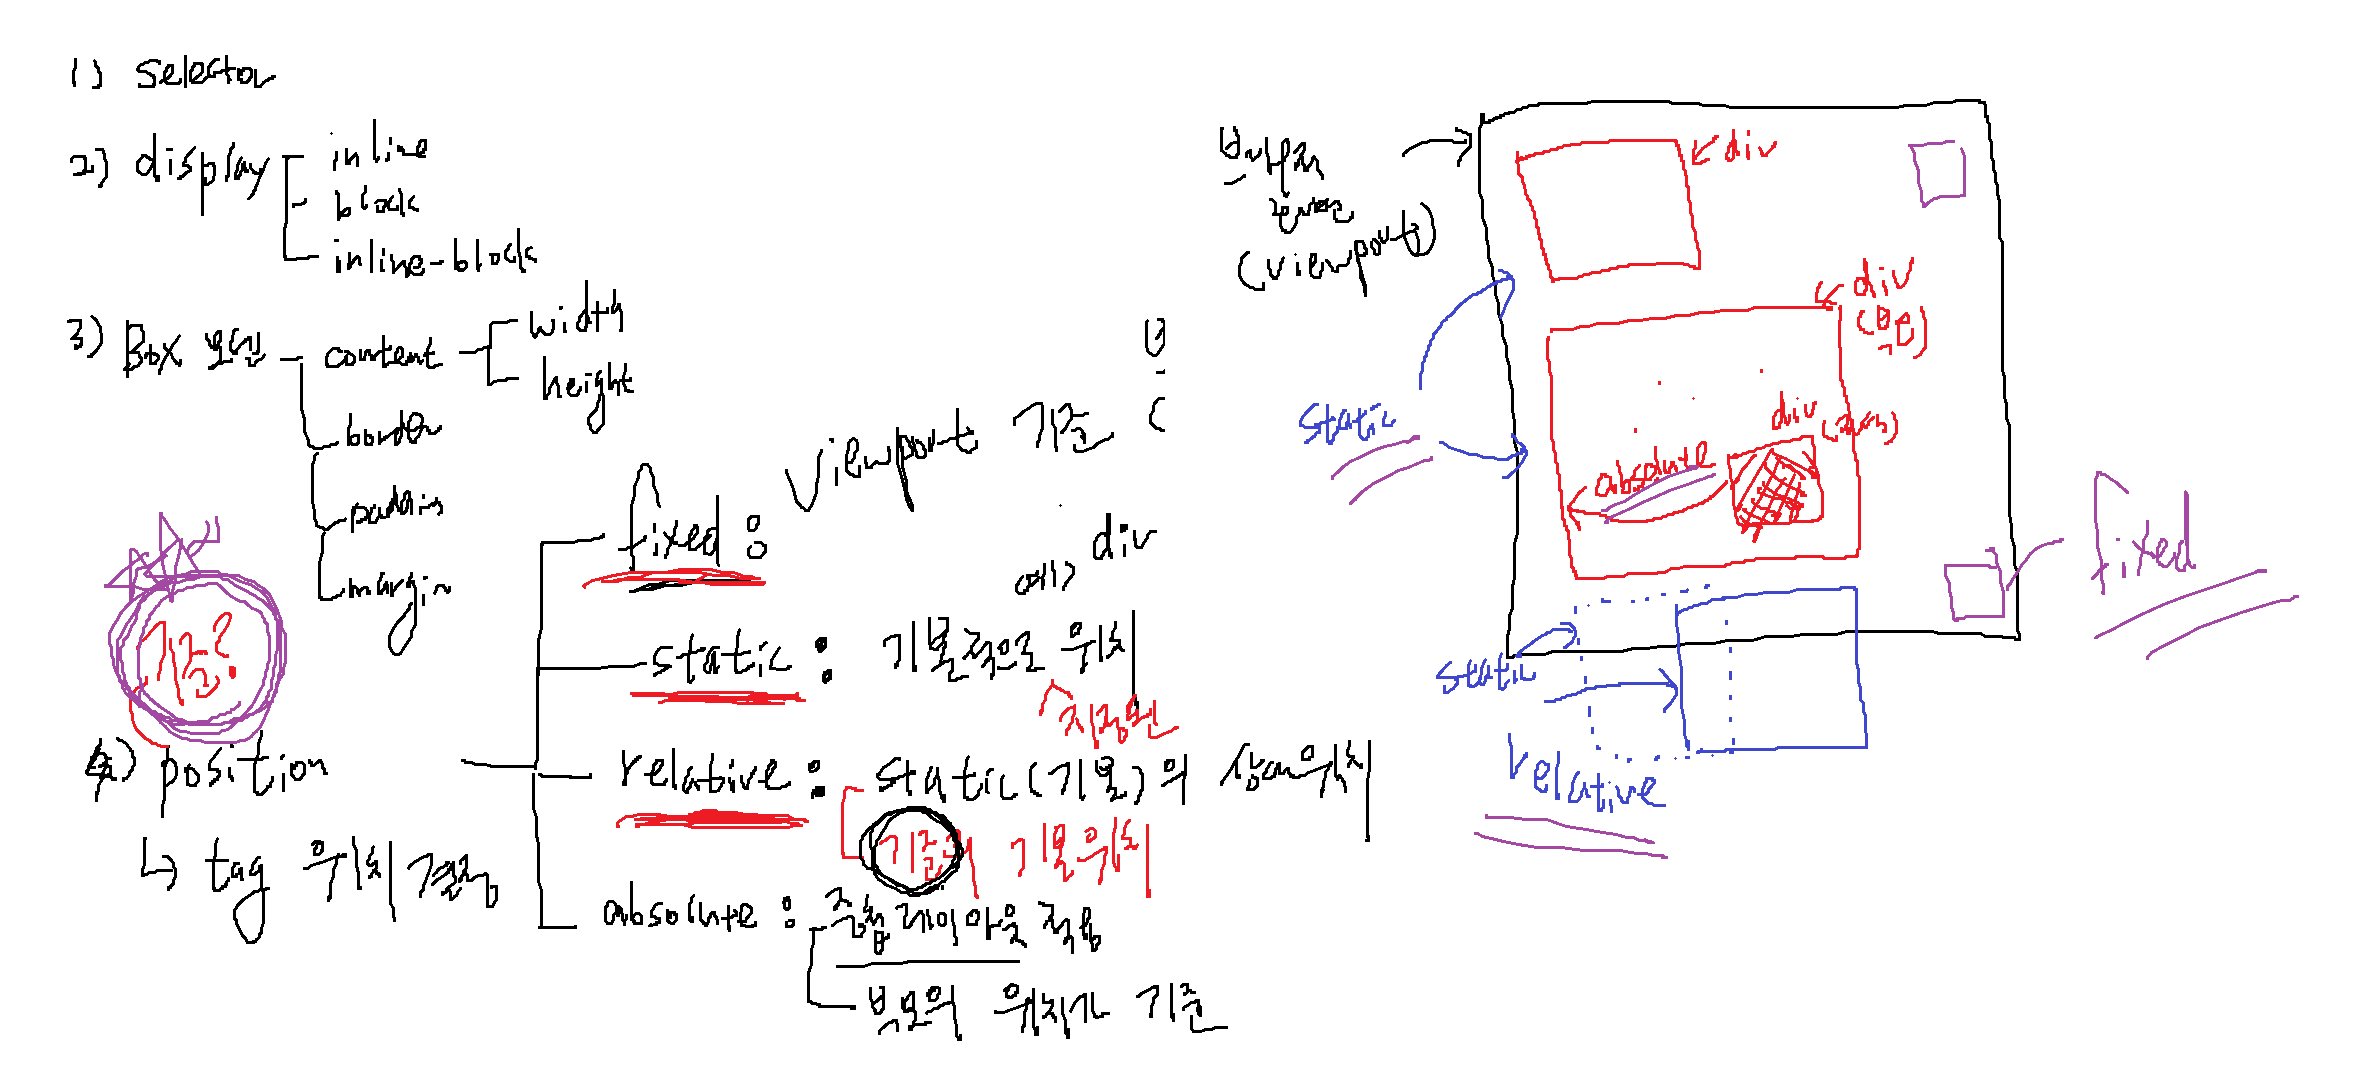 1) selector
2) display
inline
block
inline-block
3) Box 모델
content
width
height
border
padding
margin
기준?
4) position
↳ tag 위치 결정
fixed : viewport 기준 (
(예) div
static : 기본적으로 위치
지정된
relative : static(기본)의 상대위치
기준이 기본위치
absolute : 중첩 레이아웃 적용
부모의 위치가 기준
브라우저
화면
(viewport)
div
div
(부모)
static
div
absolute
fixed
static
relative